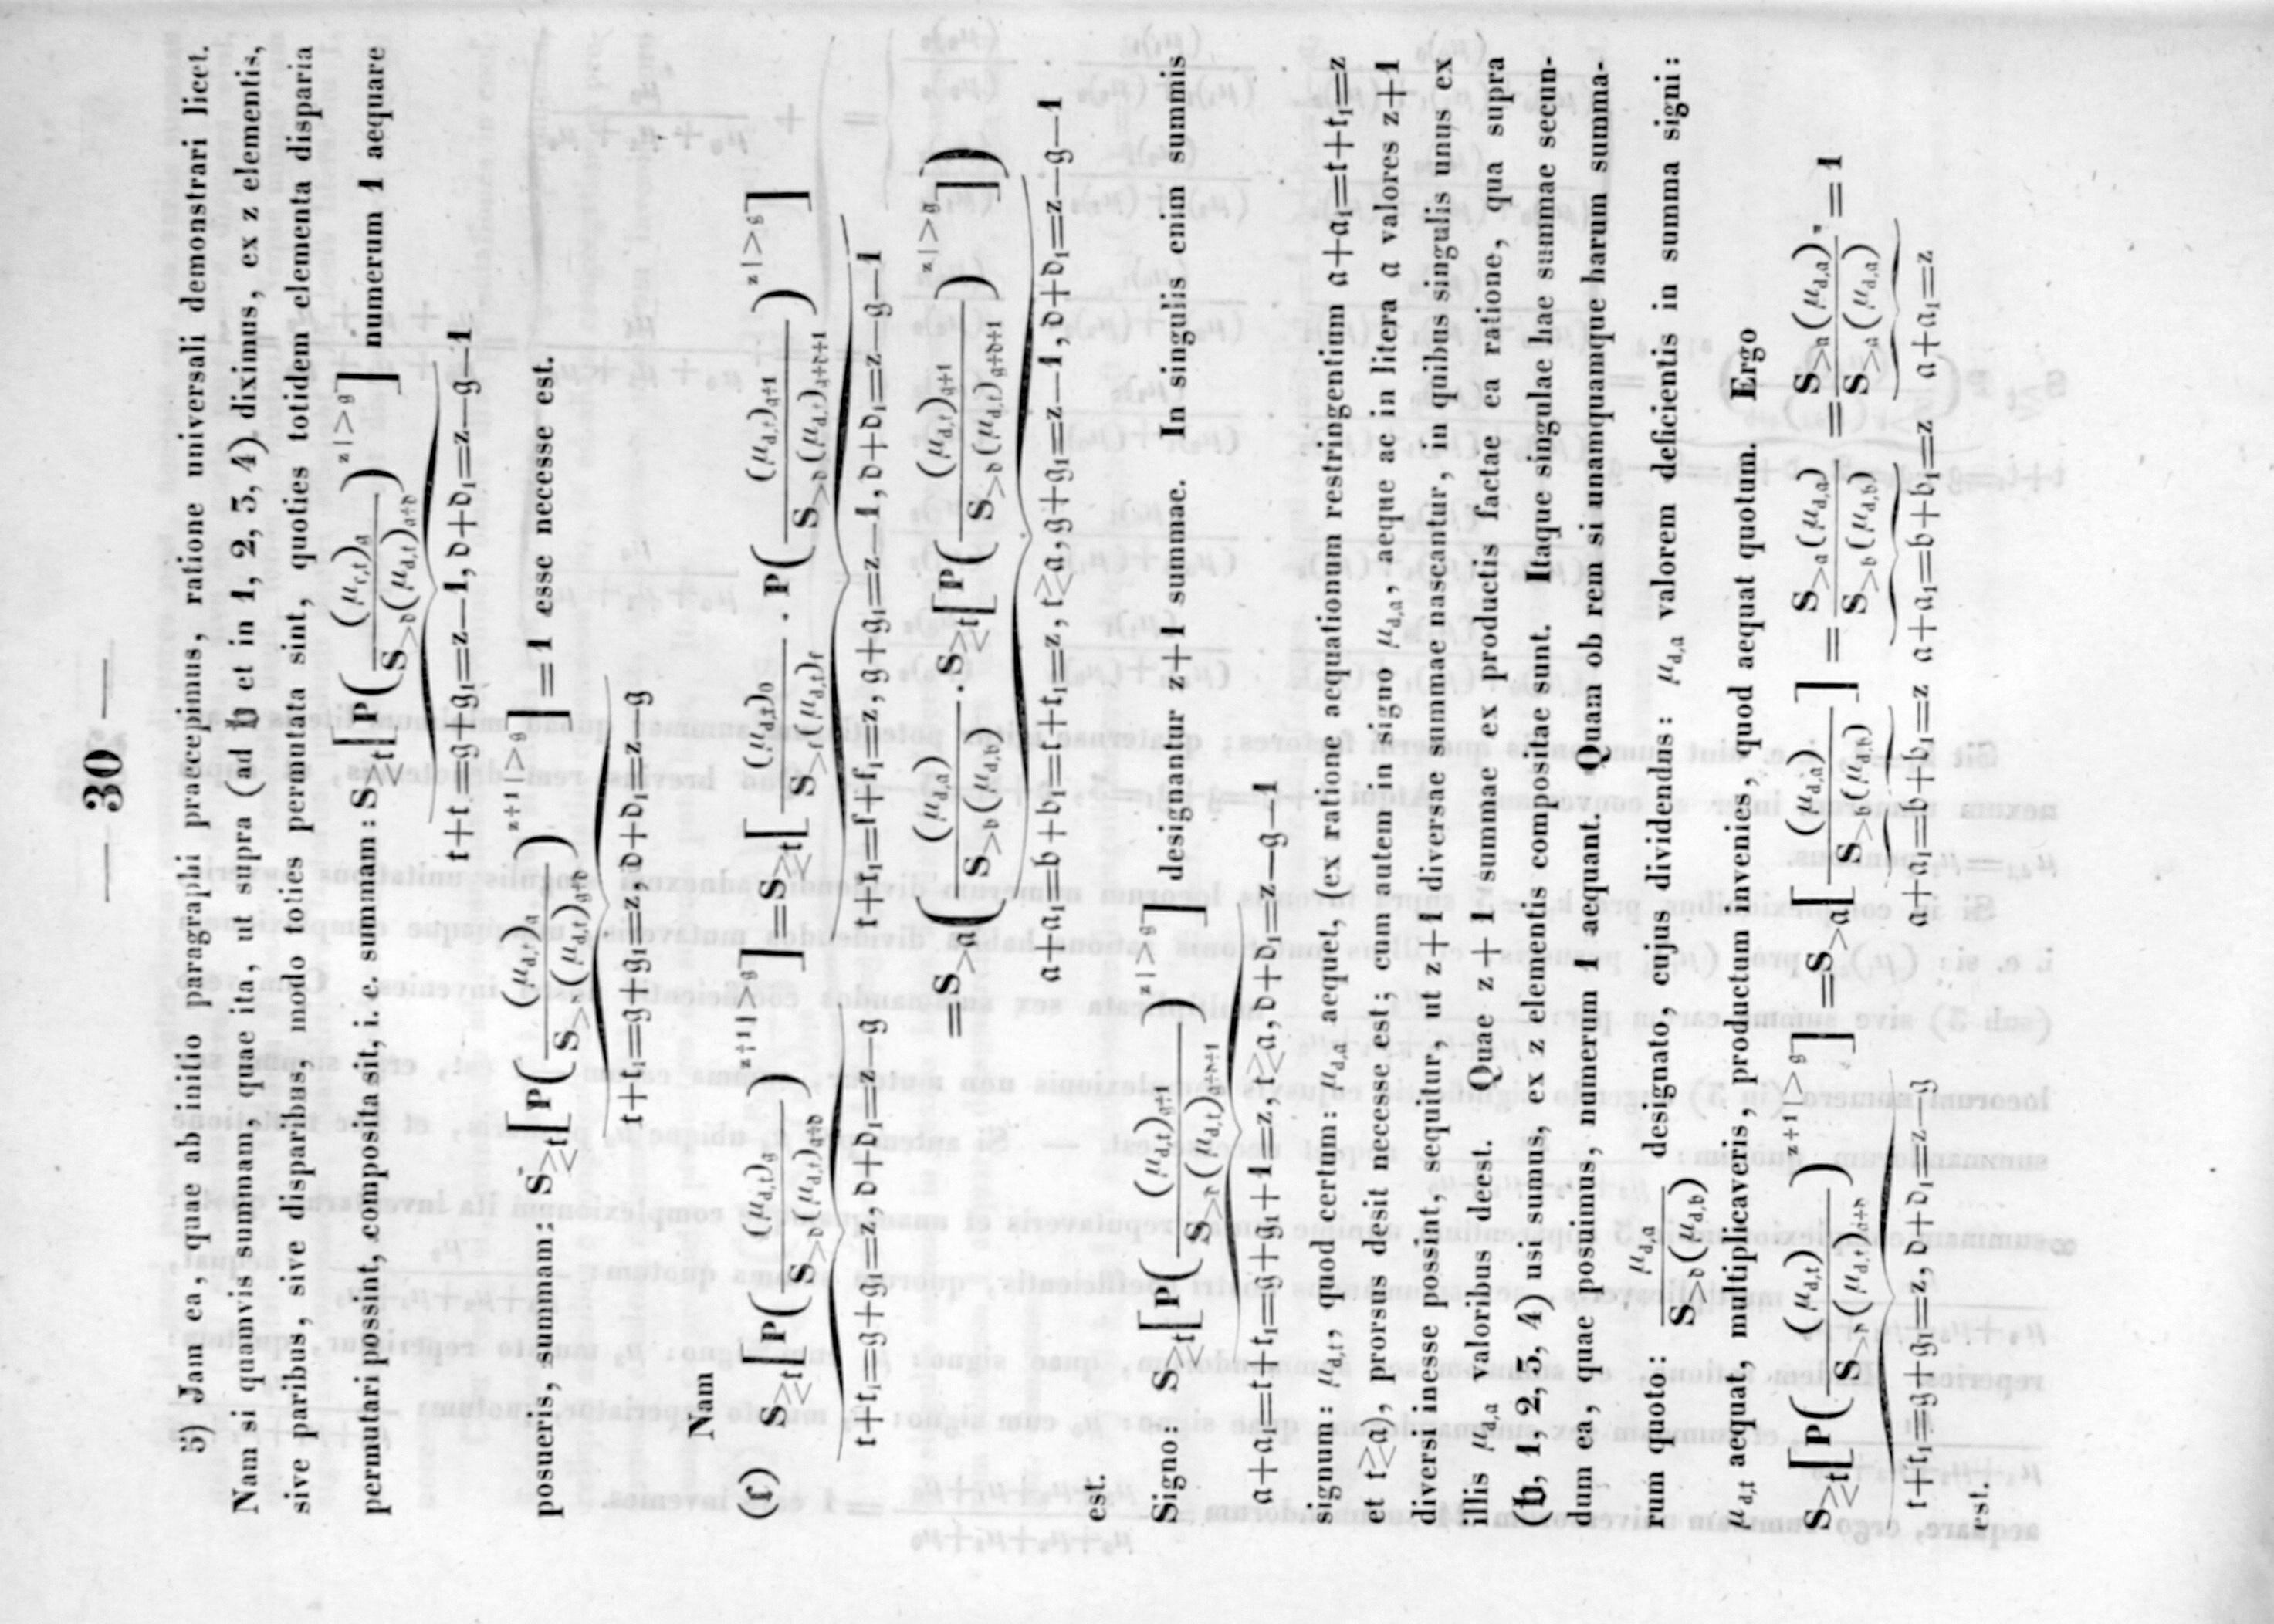 — 30 —
5) Jam ea, quae ab initio paragraphi praecepimus, ratione universali demonstrari licet.
Nam si quamvis summam, quae ita, ut supra (ad 𝔥 et in 1, 2, 3, 4) diximus, ex z elementis,
sive paribus, sive disparibus, modo toties permutata sint, quoties totidem elementa disparia
permutari possint, composita sit, i. e. summam: S≥t[P((μ_{r,t})_g / S>b(μ_{d,t})_{g+b})^{z|>g}] numerum 1 aequare
t+t=g+g₁=z—1, b+b₁=z—g—1
posueris, summam: S≥t[P((μ_{d,t})_g / S>(μ_{d,t})_{g+b})^{z+1|>g}]=1 esse necesse est.
t+t₁=g+g₁=z, b+b₁=z—g
Nam
(r) S≥t[P((μ_{d,t})_g / S>b(μ_{d,t})_{g+b})^{z+1|>g}]=S≥t[(μ_{d,t})₀ / S>f(μ_{d,t})_f . P((μ_{d,t})_{g+1} / S>b(μ_{d,t})_{g+b+1})^{z|>g}]
t+t₁=g+g₁=z, b+b₁=z—g t+t₁=f+f₁=z, g+g₁=z—1, b+b₁=z—g—1
=S>a((μ_{d,a}) / S>b(μ_{d,b}) . S≥t[P((μ_{d,t})_{g+1} / S>b(μ_{d,t})_{g+b+1})^{z|>g}])
a+a₁=b+b₁=t+t₁=z, t≷a, g+g₁=z—1, b+b₁=z—g—1
est.
Signo: S≥t[P((μ_{d,t})_{g+1} / S>b(μ_{d,t})_{g+b+1})^{z|>g}] designantur z+1 summae. In singulis enim summis
a+a₁=t+t₁=g+g₁+1=z, t≷a, b+b₁=z—g—1
signum: μ_{d,t}, quod certum: μ_{d,a} aequet, (ex ratione aequationum restringentium a+a₁=t+t₁=z
et t≷a), prorsus desit necesse est; cum autem in signo μ_{d,a}, aeque ac in litera a valores z+1
diversi inesse possint, sequitur, ut z+1 diversae summae nascantur, in quibus singulis unus ex
illis μ_{d,a} valoribus deest. Quae z+1 summae ex productis factae ea ratione, qua supra
(𝔥, 1, 2, 3, 4) usi sumus, ex z elementis compositae sunt. Itaque singulae hae summae secun-
dum ea, quae posuimus, numerum 1 aequant. Quam ob rem si unamquamque harum summa-
rum quoto: μ_{d,a} / S>b(μ_{d,b}) designato, cujus dividendus: μ_{d,a} valorem deficientis in summa signi:
μ_{d,t} aequat, multiplicaveris, productum invenies, quod aequat quotum. Ergo
S≥t[P((μ_{d,t})_g / S>b(μ_{d,t})_{g+b})^{z+1|>g}]=S>a[(μ_{d,a}) / S>b(μ_{d,b})]=S>a(μ_{d,a}) / S>b(μ_{d,b})=S>a(μ_{d,a}) / S>a(μ_{d,a})=1
t+t₁=g+g₁=z, b+b₁=z—g a+a₁=b+b₁=z a+a₁=b+b₁=z a+a₁=z
est.